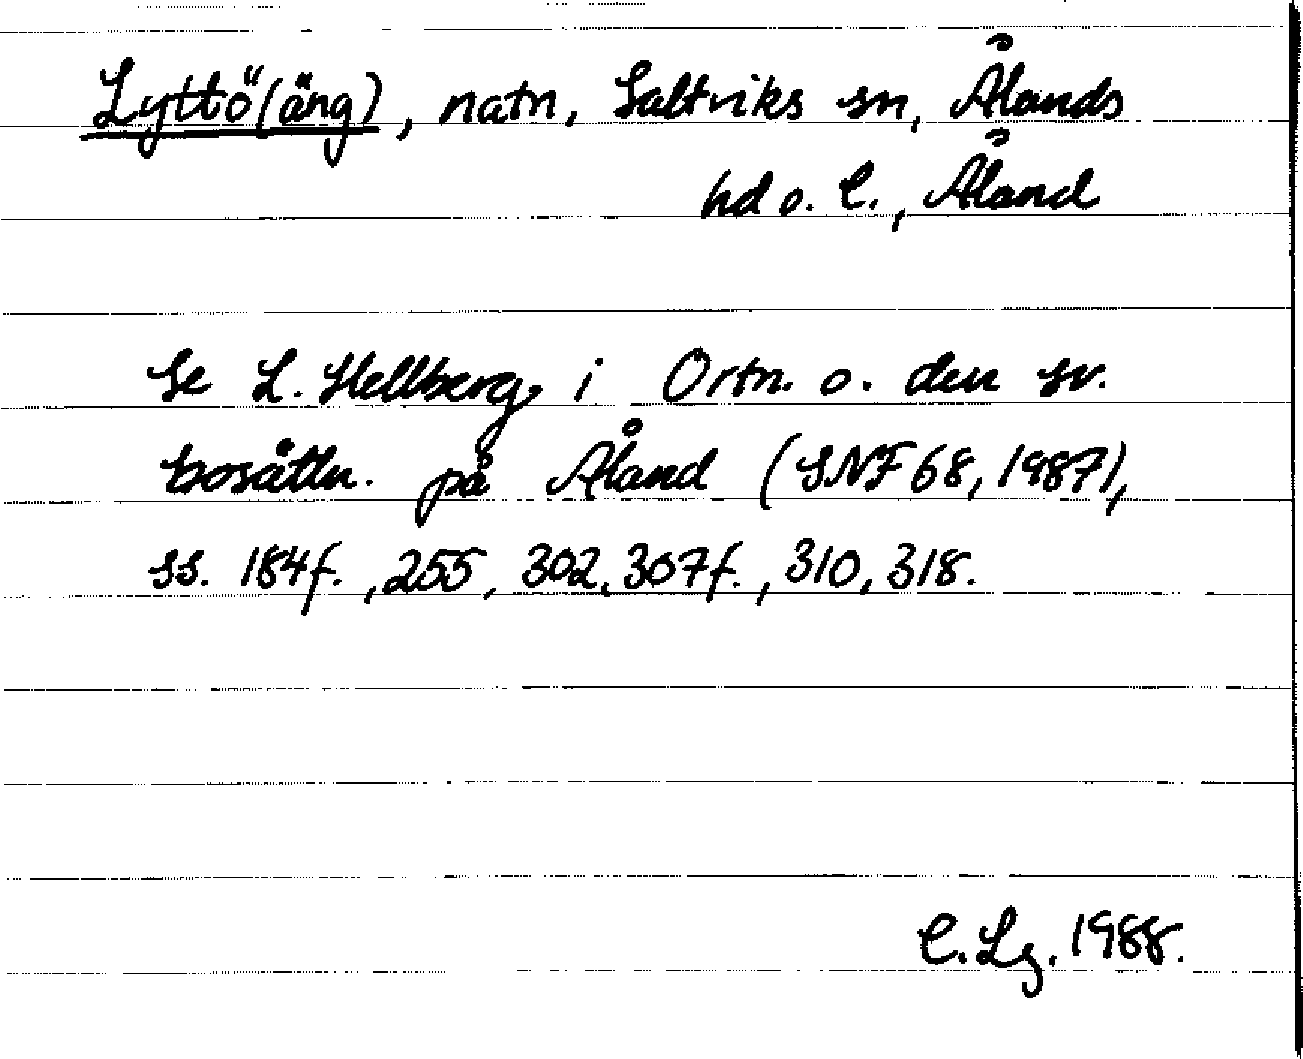 Lyttö(äng), natn, Saltviks sn, Ålands
hd o. l., Åland
Se L. Hellberg i Ortn. o. den sv.
bosättn. på Åland (SNF 68, 1987),
ss. 184f., 255, 302, 307f., 310, 318.
C. Lg. 1988.